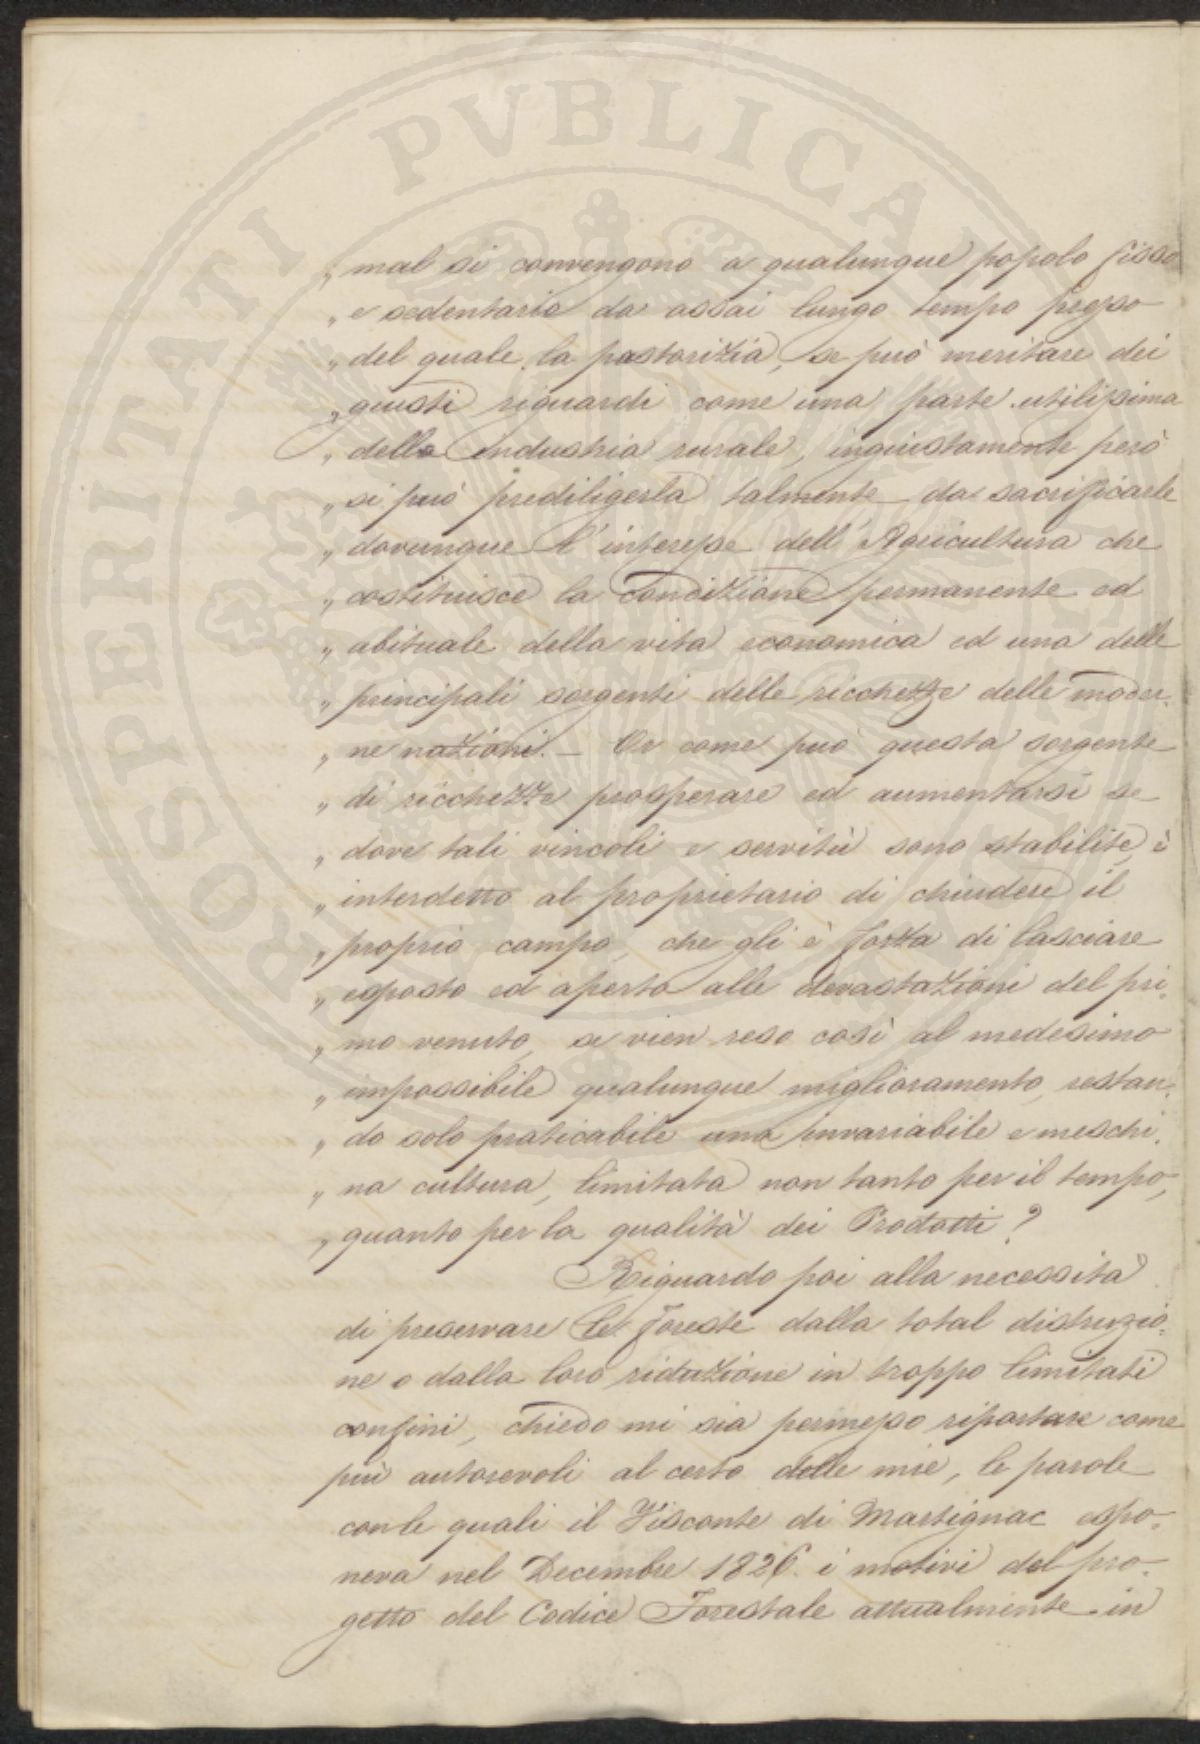 „ mal si convengono a qualunque popolo fisso
„ e sedentario da assai lungo tempo presso
„ del quale la pastorizia, se può meritare dei
„ giusti riguardi come una parte utilissima
„ della industria rurale, ingiustamente però
„ si può prediligerla talmente da sacrificarle
„ dovunque l'interesse dell'Agricultura che
„ costituisce la condizione permanente ed
„ abituale della vita economica ed una delle
„ principali sorgenti delle ricchezze delle moder-
„ ne nazioni. — Or come può questa sorgente
„ di ricchezze prosperare ed aumentarsi se
„ dove tali vincoli e servitù sono stabilite, è
„ interdetto al proprietario di chiudere il
„ proprio campo, che gli è forza di lasciare
„ esposto ed aperto alle devastazioni del pri-
„ mo venuto, se vien reso così al medesimo
„ impossibile qualunque miglioramento, restan-
„ do solo praticabile una invariabile e meschi-
„ na cultura, limitata non tanto per il tempo,
„ quanto per la qualità dei Prodotti?
Riguardo poi alla necessità
di preservare le foreste dalla total distruzio-
ne o dalla loro riduzione in troppo limitati
confini, chiedo mi sia permesso riportare come
più autorevoli al certo delle mie, le parole
con le quali il Visconte di Martignac espo-
neva nel Decembre 1826. i motivi del pro-
getto del Codice Forestale attualmente in
PROSPERITATI PVBLICAE